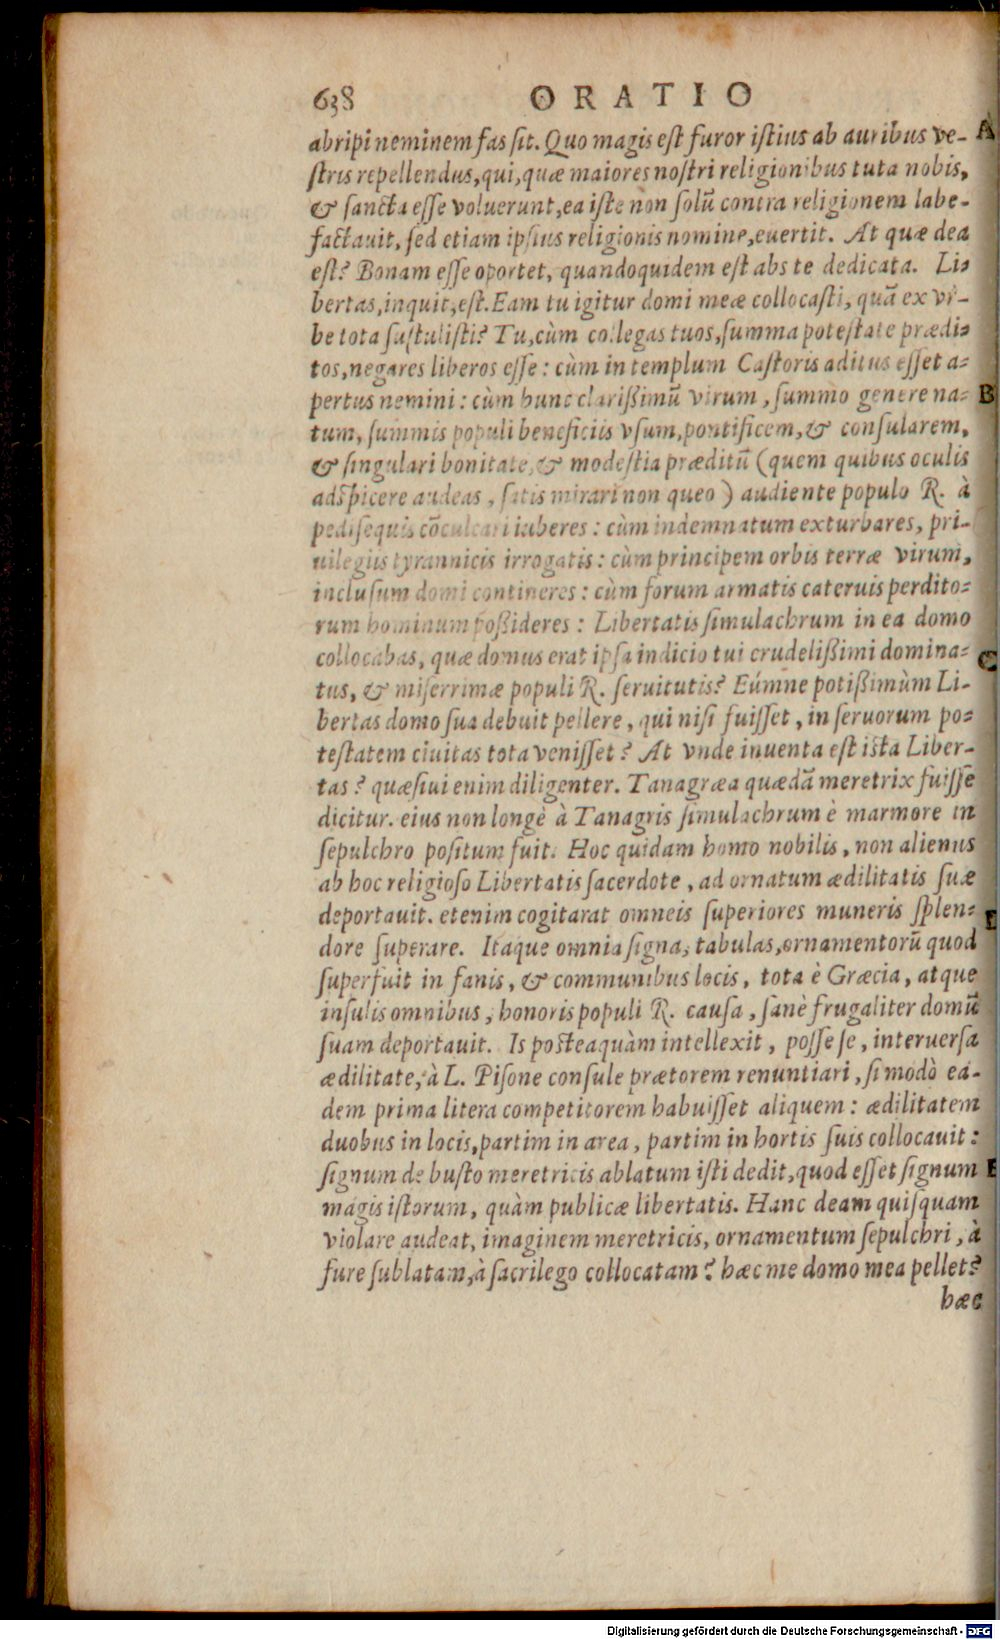 638 ORATIO
abripi neminem fas sit. Quo magis est furor istius ab auribus ve- A
stris repellendus, qui, quæ maiores nostri religionibus tuta nobis,
& sancta esse voluerunt, ea iste non solũ contra religionem labe-
factauit, sed etiam ipsius religionis nomine, euertit. At quæ dea
est? Bonam esse oportet, quandoquidem est abs te dedicata. Li-
bertas, inquit, est. Eam tu igitur domi meæ collocasti, quã ex vr-
be tota sustulisti? Tu, cùm collegas tuos, summa potestate prædi-
tos, negares liberos esse: cùm in templum Castoris aditus esset a-
pertus nemini: cùm hunc clarißimũ virum, summo genere na- B
tum, summis populi beneficiis vsum, pontificem, & consularem,
& singulari bonitate, & modestia præditũ (quem quibus oculis
adspicere audeas, satis mirari non queo) audiente populo R. à
pedisequis cõculcari iuberes: cùm indemnatum exturbares, pri-
uilegiis tyrannicis irrogatis: cùm principem orbis terræ virum,
inclusum domi contineres: cùm forum armatis cateruis perdito-
rum hominum poßideres: Libertatis simulachrum in ea domo
collocabas, quæ domus erat ipsa indicio tui crudelißimi domina- C
tus, & miserrimæ populi R. seruitutis? Eúmne potißimùm Li-
bertas domo sua debuit pellere, qui nisi fuisset, in seruorum po-
testatem ciuitas tota venisset? At vnde inuenta est ista Liber-
tas? quæsiui enim diligenter. Tanagræa quædã meretrix fuisse
dicitur. eius non longè à Tanagris simulachrum è marmore in
sepulchro positum fuit. Hoc quidam homo nobilis, non alienus
ab hoc religioso Libertatis sacerdote, ad ornatum ædilitatis suæ
deportauit. etenim cogitarat omneis superiores muneris splen-
dore superare. Itaque omnia signa, tabulas, ornamentorũ quod
superfuit in fanis, & communibus locis, tota è Græcia, atque
insulis omnibus, honoris populi R. causa, sanè frugaliter domũ
suam deportauit. Is posteaquàm intellexit, posse se, interuersa
ædilitate, à L. Pisone consule prætorem renuntiari, si modò ea-
dem prima litera competitorem habuisset aliquem: ædilitatem
duobus in locis, partim in area, partim in hortis suis collocauit:
signum de busto meretricis ablatum isti dedit, quod esset signum E
magis istorum, quàm publicæ libertatis. Hanc deam quisquam
violare audeat, imaginem meretricis, ornamentum sepulchri, à
fure sublatam, à sacrilego collocatam? hæc me domo mea pellet?
hæc
Digitalisierung gefördert durch die Deutsche Forschungsgemeinschaft - DFG